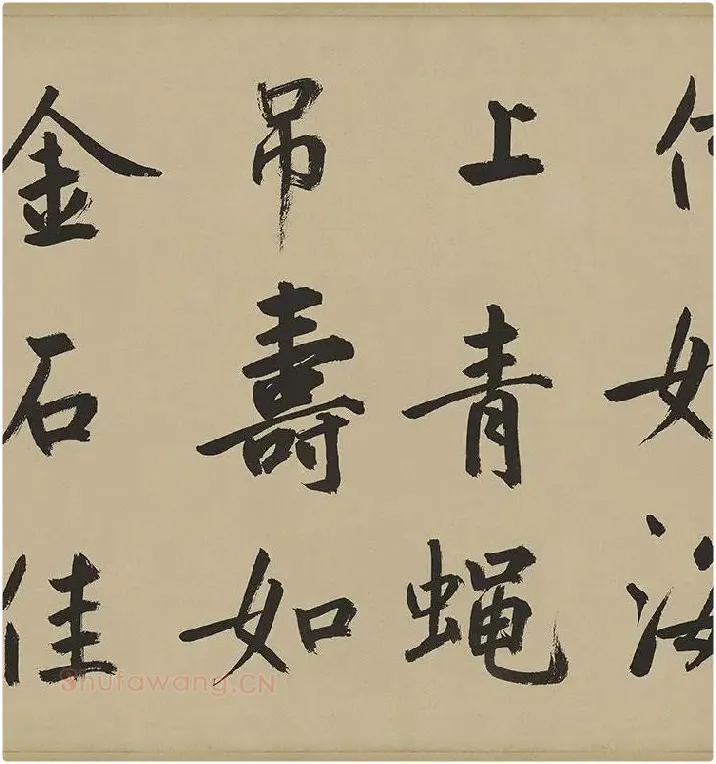 上青蝇
吊壽如
金石佳
Shufawang.CN